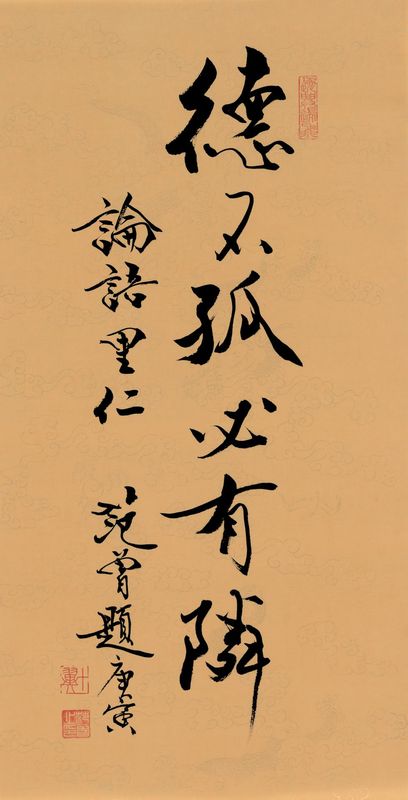 德不孤必有隣
論語里仁　范曾題庚寅